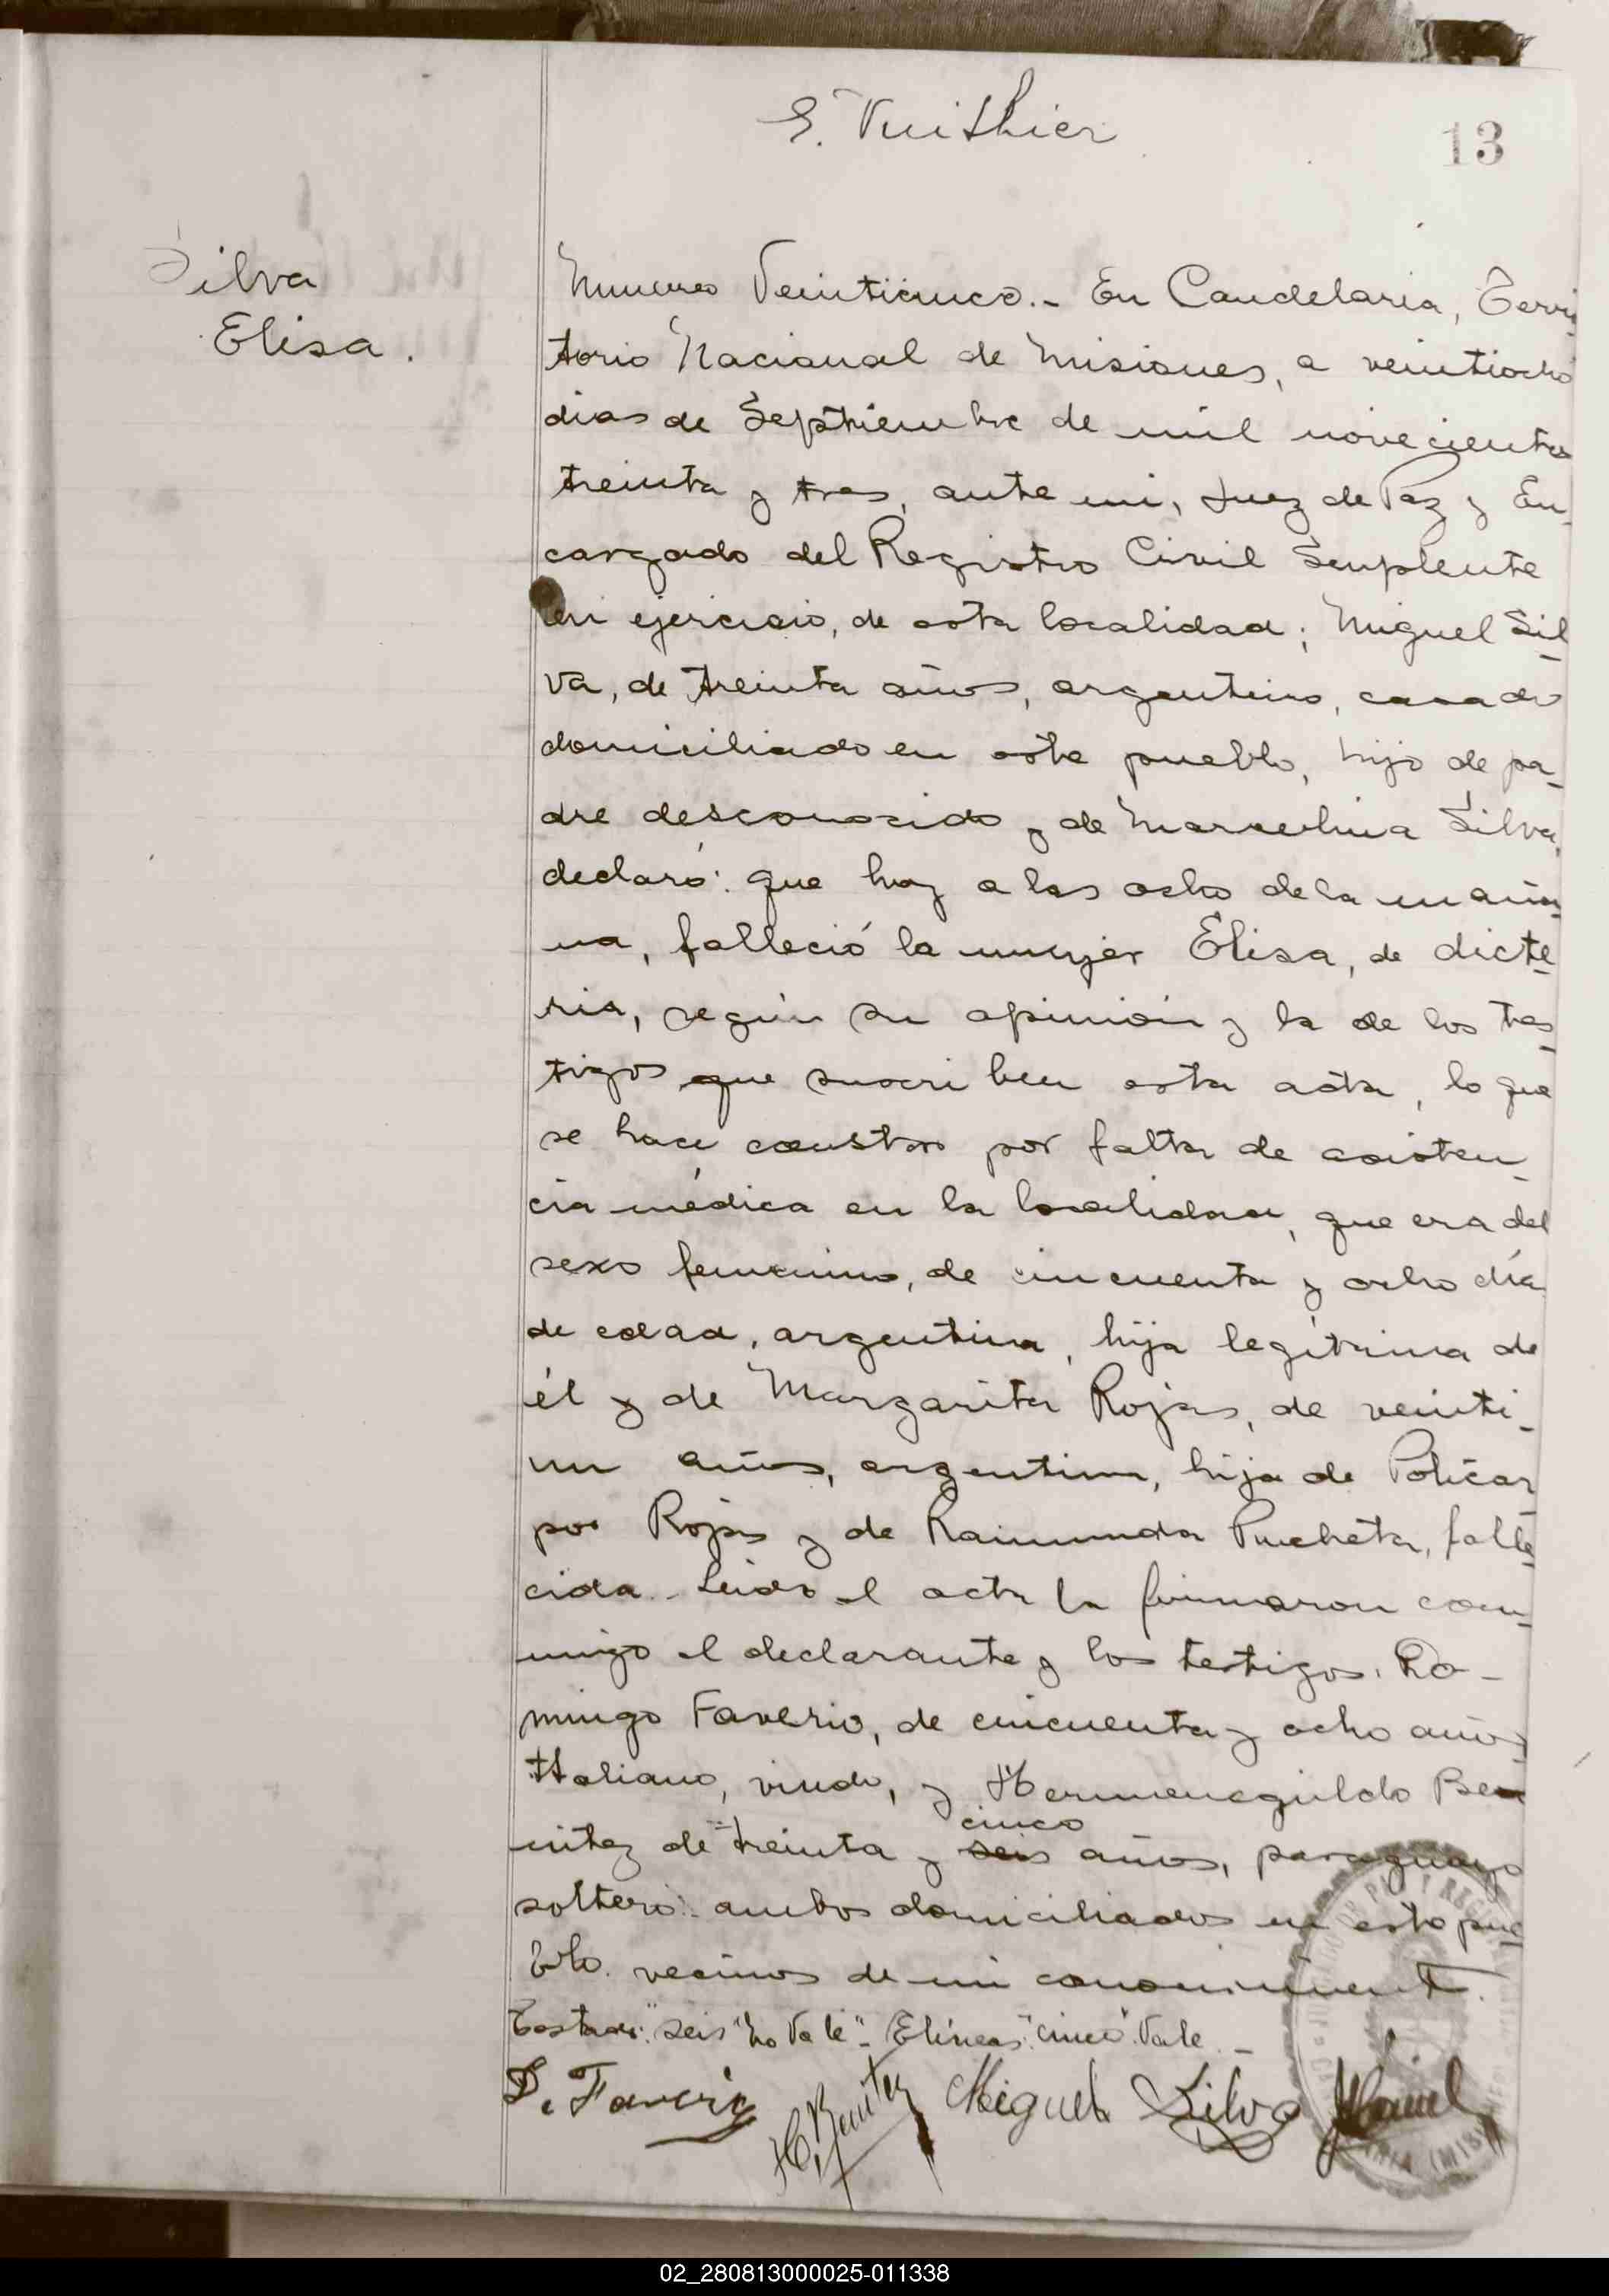 E. Vuithier
13
Silva
Elisa.
Numero Veinticinco.- En Candelaria, Terri-
torio Nacional de Misiones, a veintiocho
dias de Septiembre de mil novecientos
treinta y tres, ante mi, Juez de Paz y En-
cargado del Registro Civil Suplente
en ejercicio, de esta localidad; Miguel Sil-
va, de treinta años, argentino, casado
domiciliado en este pueblo, hijo de pa-
dre desconocido y de Marcelina Silva,
declaró: que hoy a las ocho de la maña-
na, falleció la mujer Elisa, de dicte-
ria, según su opinión y la de los tes-
tigos que suscriben esta acta, lo que
se hace constar por falta de asisten-
cia médica en la localidad, que era del
sexo femenino, de cincuenta y ocho dia
de edad, argentina, hija legítima de
él y de Margarita Rojas, de veinti-
un años, argentina, hija de Policar-
po Rojas y de Raimunda Pucheta, falle-
cida.- Leida el acta la firmaron con-
migo el declarante y los testigos: Do-
mingo Faverio, de cincuenta y ocho años,
Italiano, viudo, y Hermenegildo Be-
cinco
nitez de treinta y seis años, paraguayo
soltero: ambos domiciliados en esta pue-
blo. vecinos de mi conocimiento.
Testado: "seis" No Vale"- Elineas: "cinco" Vale.-
D. Faverio H. Benitez Miguel Silva
02_280813000025-011338